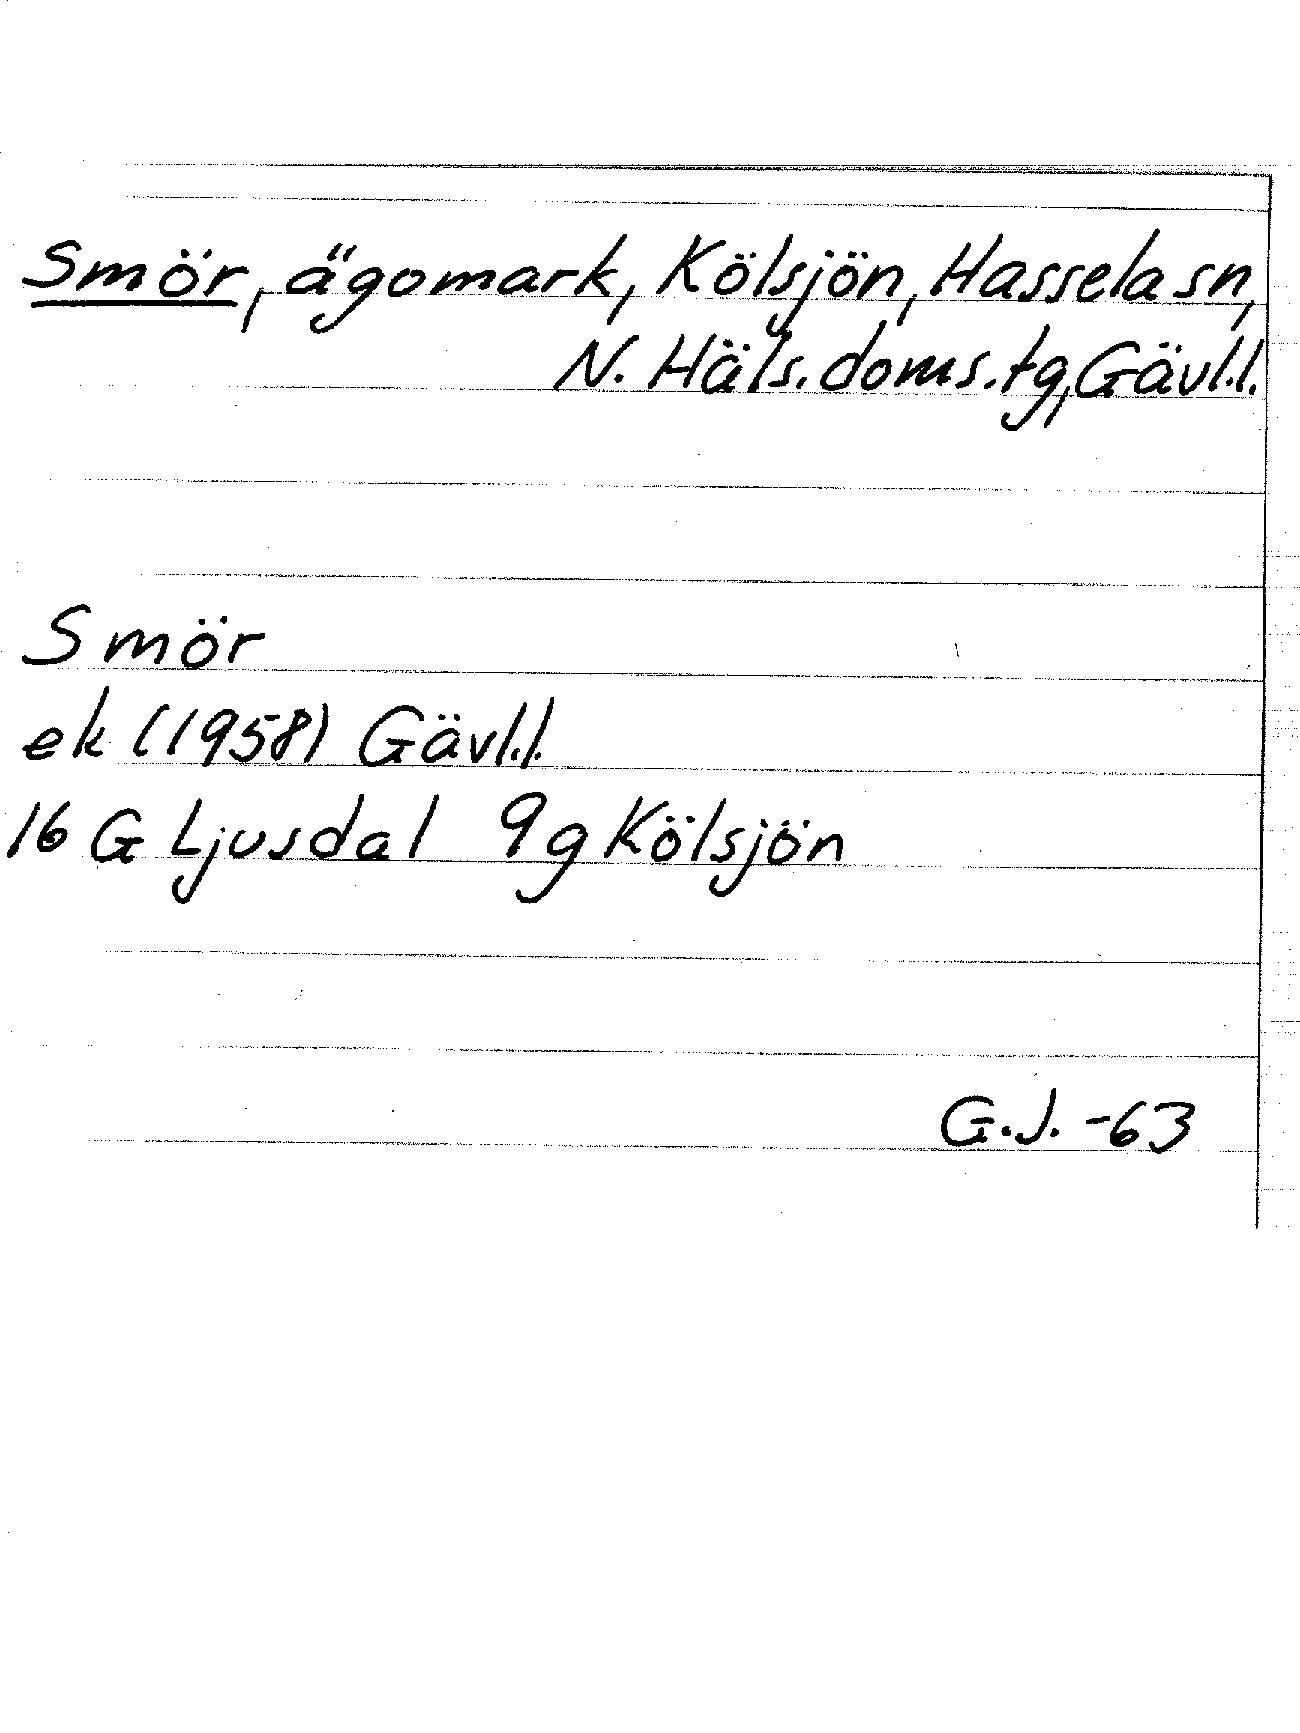 Smör, ägomark, Kölsjön, Hassela sn,
N. Häls. doms. tg, Gävl.l.
Smör
ek (1958) Gävl.l.
16 G Ljusdal 9g Kölsjön
G.J. -63